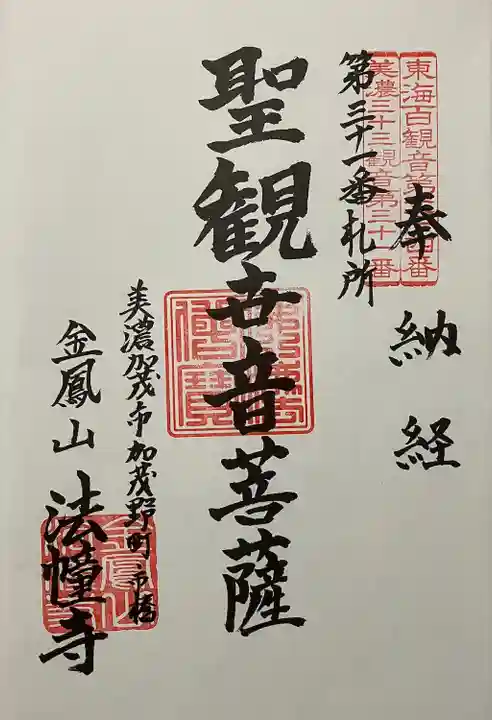 東海百観音第
美濃三十三観音第三十一番
奉納経
第三十一番札所
聖観世音菩薩
佛法僧寳
美濃加茂市加茂野町市橋
金鳳山
法幢寺